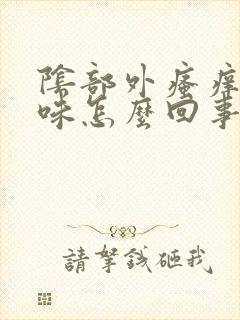 陰部外瘙痒
味怎麼回事
請拏錢砸我